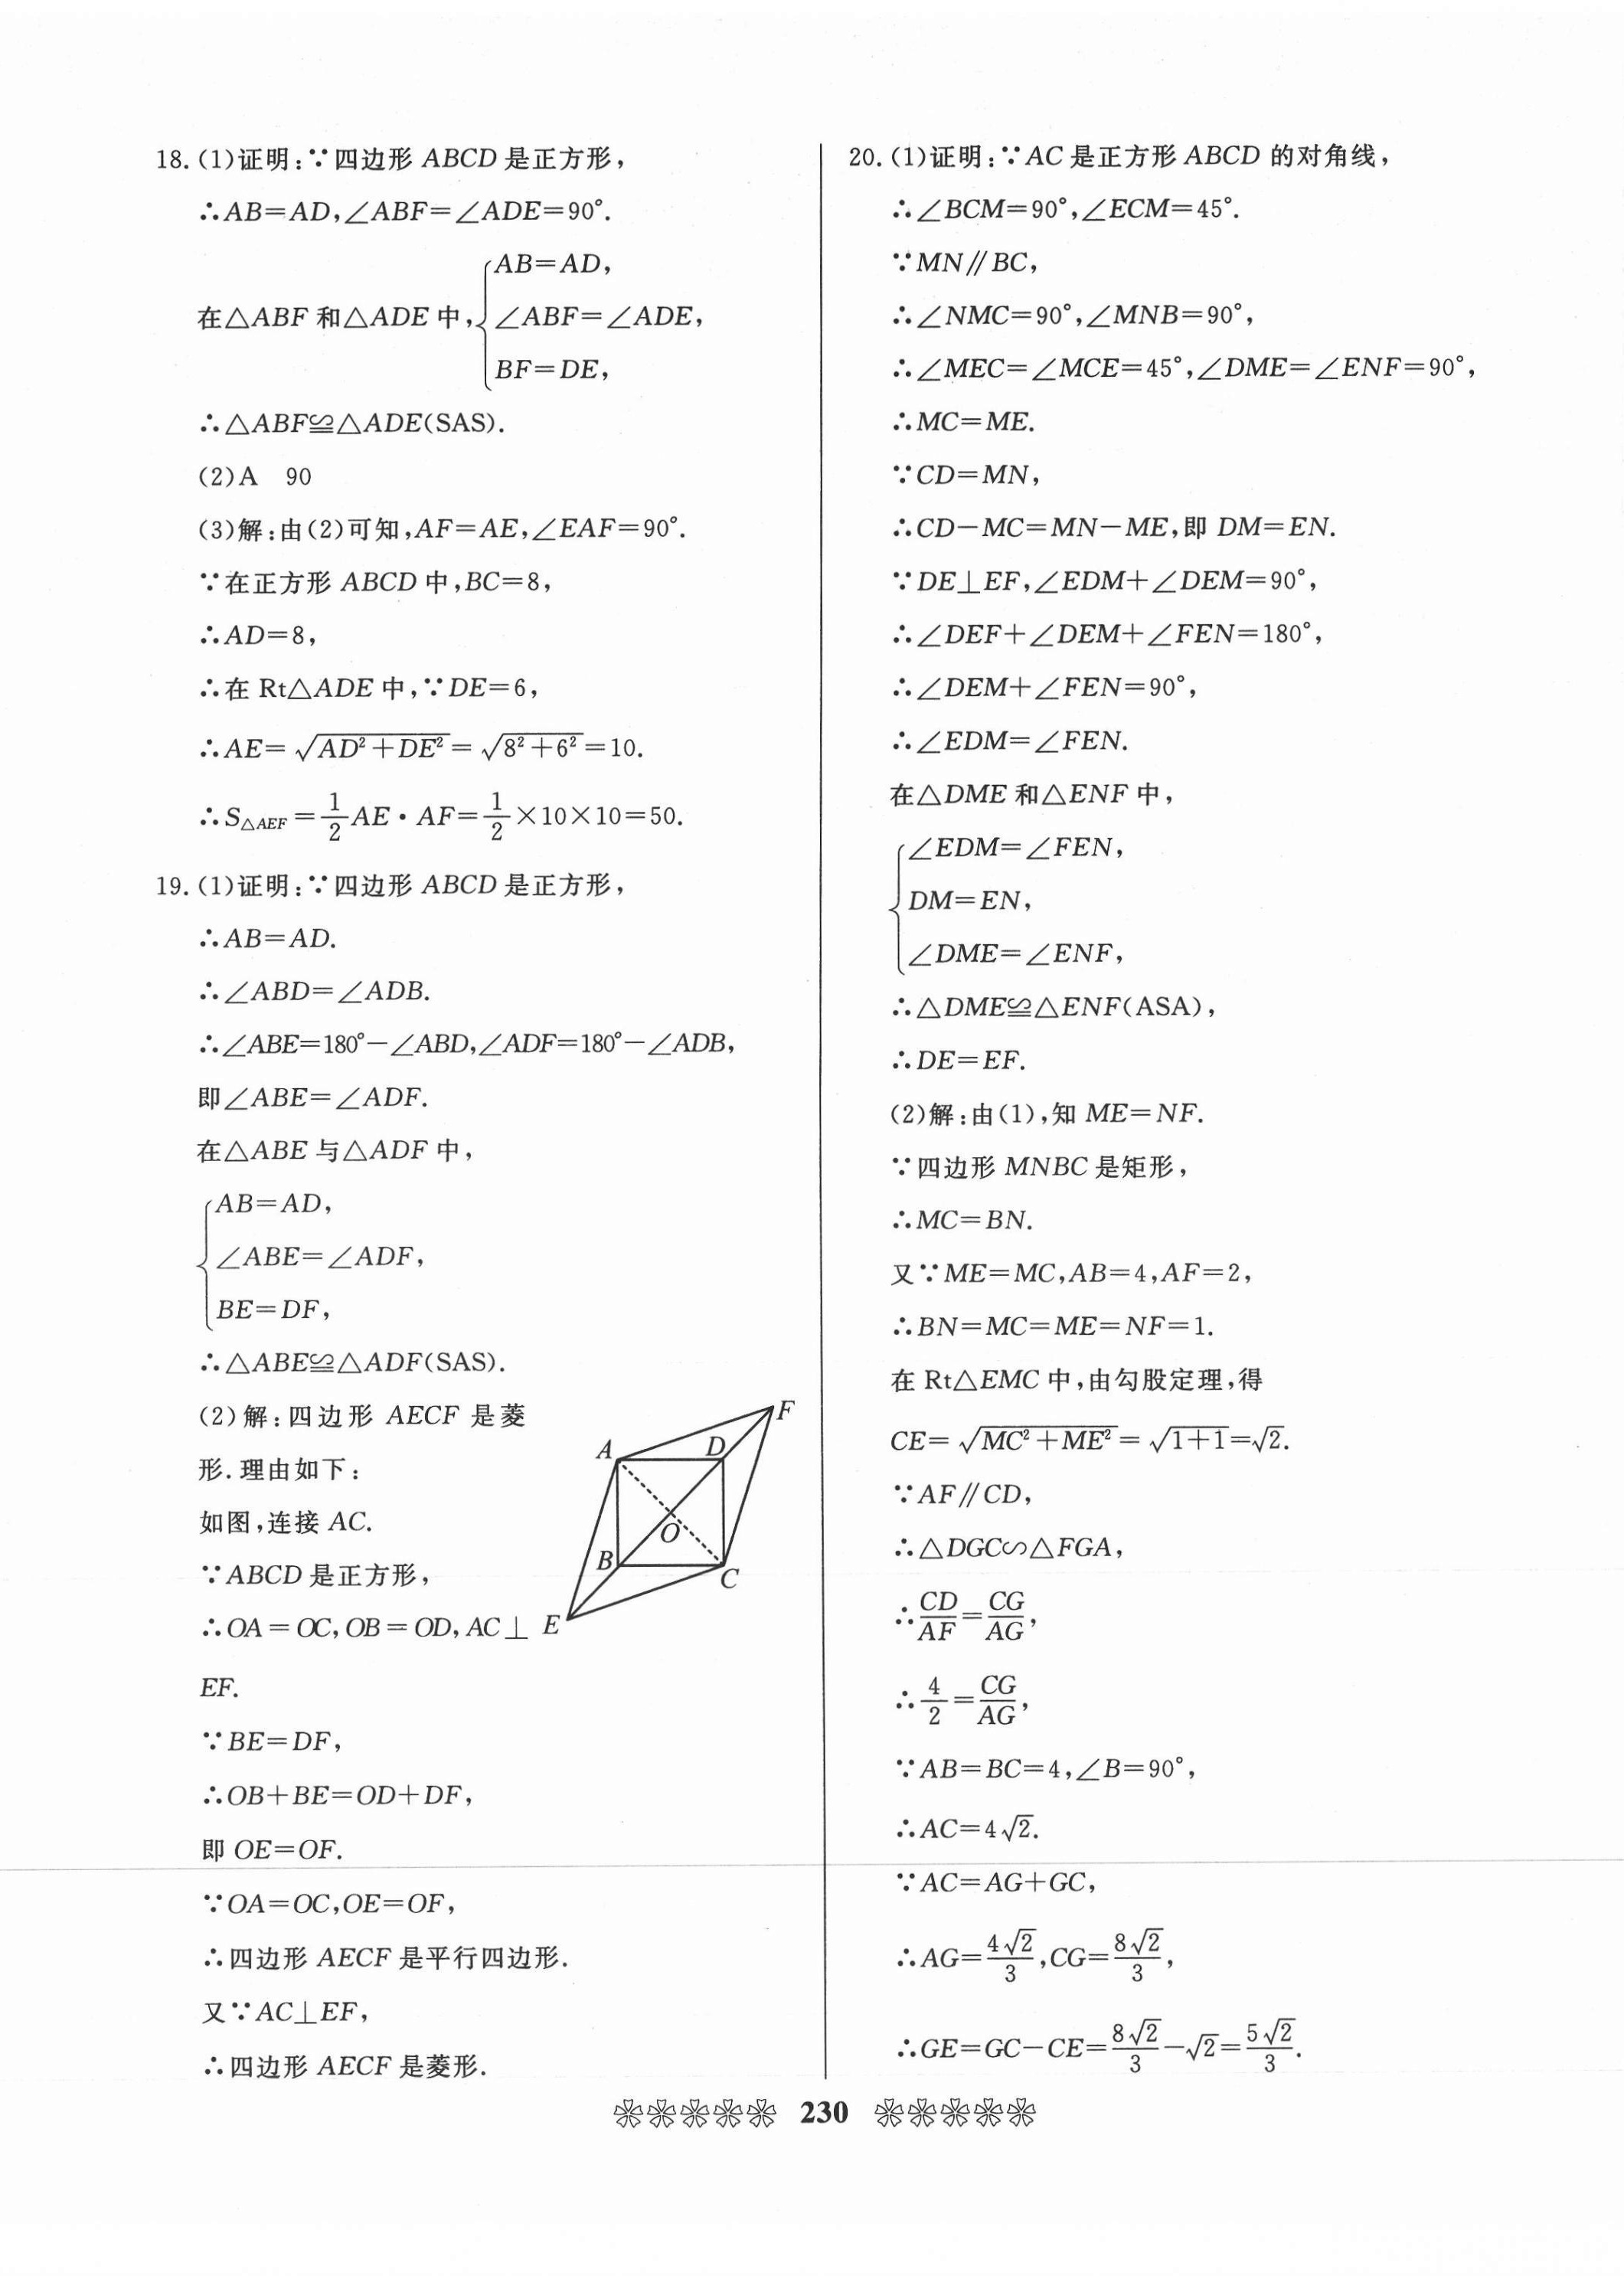 18.(1)证明:∵四边形 ABCD 是正方形,
∴AB=AD,∠ABF=∠ADE=90°.
在△ABF 和△ADE 中,{AB=AD,
∠ABF=∠ADE,
BF=DE,
∴△ABF≌△ADE(SAS).
(2)A 90
(3)解:由(2)可知,AF=AE,∠EAF=90°.
∵在正方形 ABCD 中,BC=8,
∴AD=8,
∴在 Rt△ADE 中,∵DE=6,
∴AE=√(AD²+DE²)=√(8²+6²)=10.
∴S△AEF=1/2 AE·AF=1/2×10×10=50.
19.(1)证明:∵四边形 ABCD 是正方形,
∴AB=AD.
∴∠ABD=∠ADB.
∴∠ABE=180°-∠ABD,∠ADF=180°-∠ADB,
即∠ABE=∠ADF.
在△ABE 与△ADF 中,
{AB=AD,
∠ABE=∠ADF,
BE=DF,
∴△ABE≌△ADF(SAS).
(2)解:四边形 AECF 是菱
形.理由如下:
如图,连接 AC.
∵ABCD 是正方形,
∴OA=OC,OB=OD,AC⊥
EF.
∵BE=DF,
∴OB+BE=OD+DF,
即 OE=OF.
∵OA=OC,OE=OF,
∴四边形 AECF 是平行四边形.
又∵AC⊥EF,
∴四边形 AECF 是菱形.
F
A
D
O
B
C
E
20.(1)证明:∵AC 是正方形 ABCD 的对角线,
∴∠BCM=90°,∠ECM=45°.
∵MN∥BC,
∴∠NMC=90°,∠MNB=90°,
∴∠MEC=∠MCE=45°,∠DME=∠ENF=90°,
∴MC=ME.
∵CD=MN,
∴CD-MC=MN-ME,即 DM=EN.
∵DE⊥EF,∠EDM+∠DEM=90°,
∴∠DEF+∠DEM+∠FEN=180°,
∴∠DEM+∠FEN=90°,
∴∠EDM=∠FEN.
在△DME 和△ENF 中,
{∠EDM=∠FEN,
DM=EN,
∠DME=∠ENF,
∴△DME≌△ENF(ASA),
∴DE=EF.
(2)解:由(1),知 ME=NF.
∵四边形 MNBC 是矩形,
∴MC=BN.
又∵ME=MC,AB=4,AF=2,
∴BN=MC=ME=NF=1.
在 Rt△EMC 中,由勾股定理,得
CE=√(MC²+ME²)=√(1+1)=√2.
∵AF∥CD,
∴△DGC∽△FGA,
∴CD/AF=CG/AG,
∴4/2=CG/AG,
∵AB=BC=4,∠B=90°,
∴AC=4√2.
∵AC=AG+GC,
∴AG=4√2/3,CG=8√2/3,
∴GE=GC-CE=8√2/3-√2=5√2/3.
230